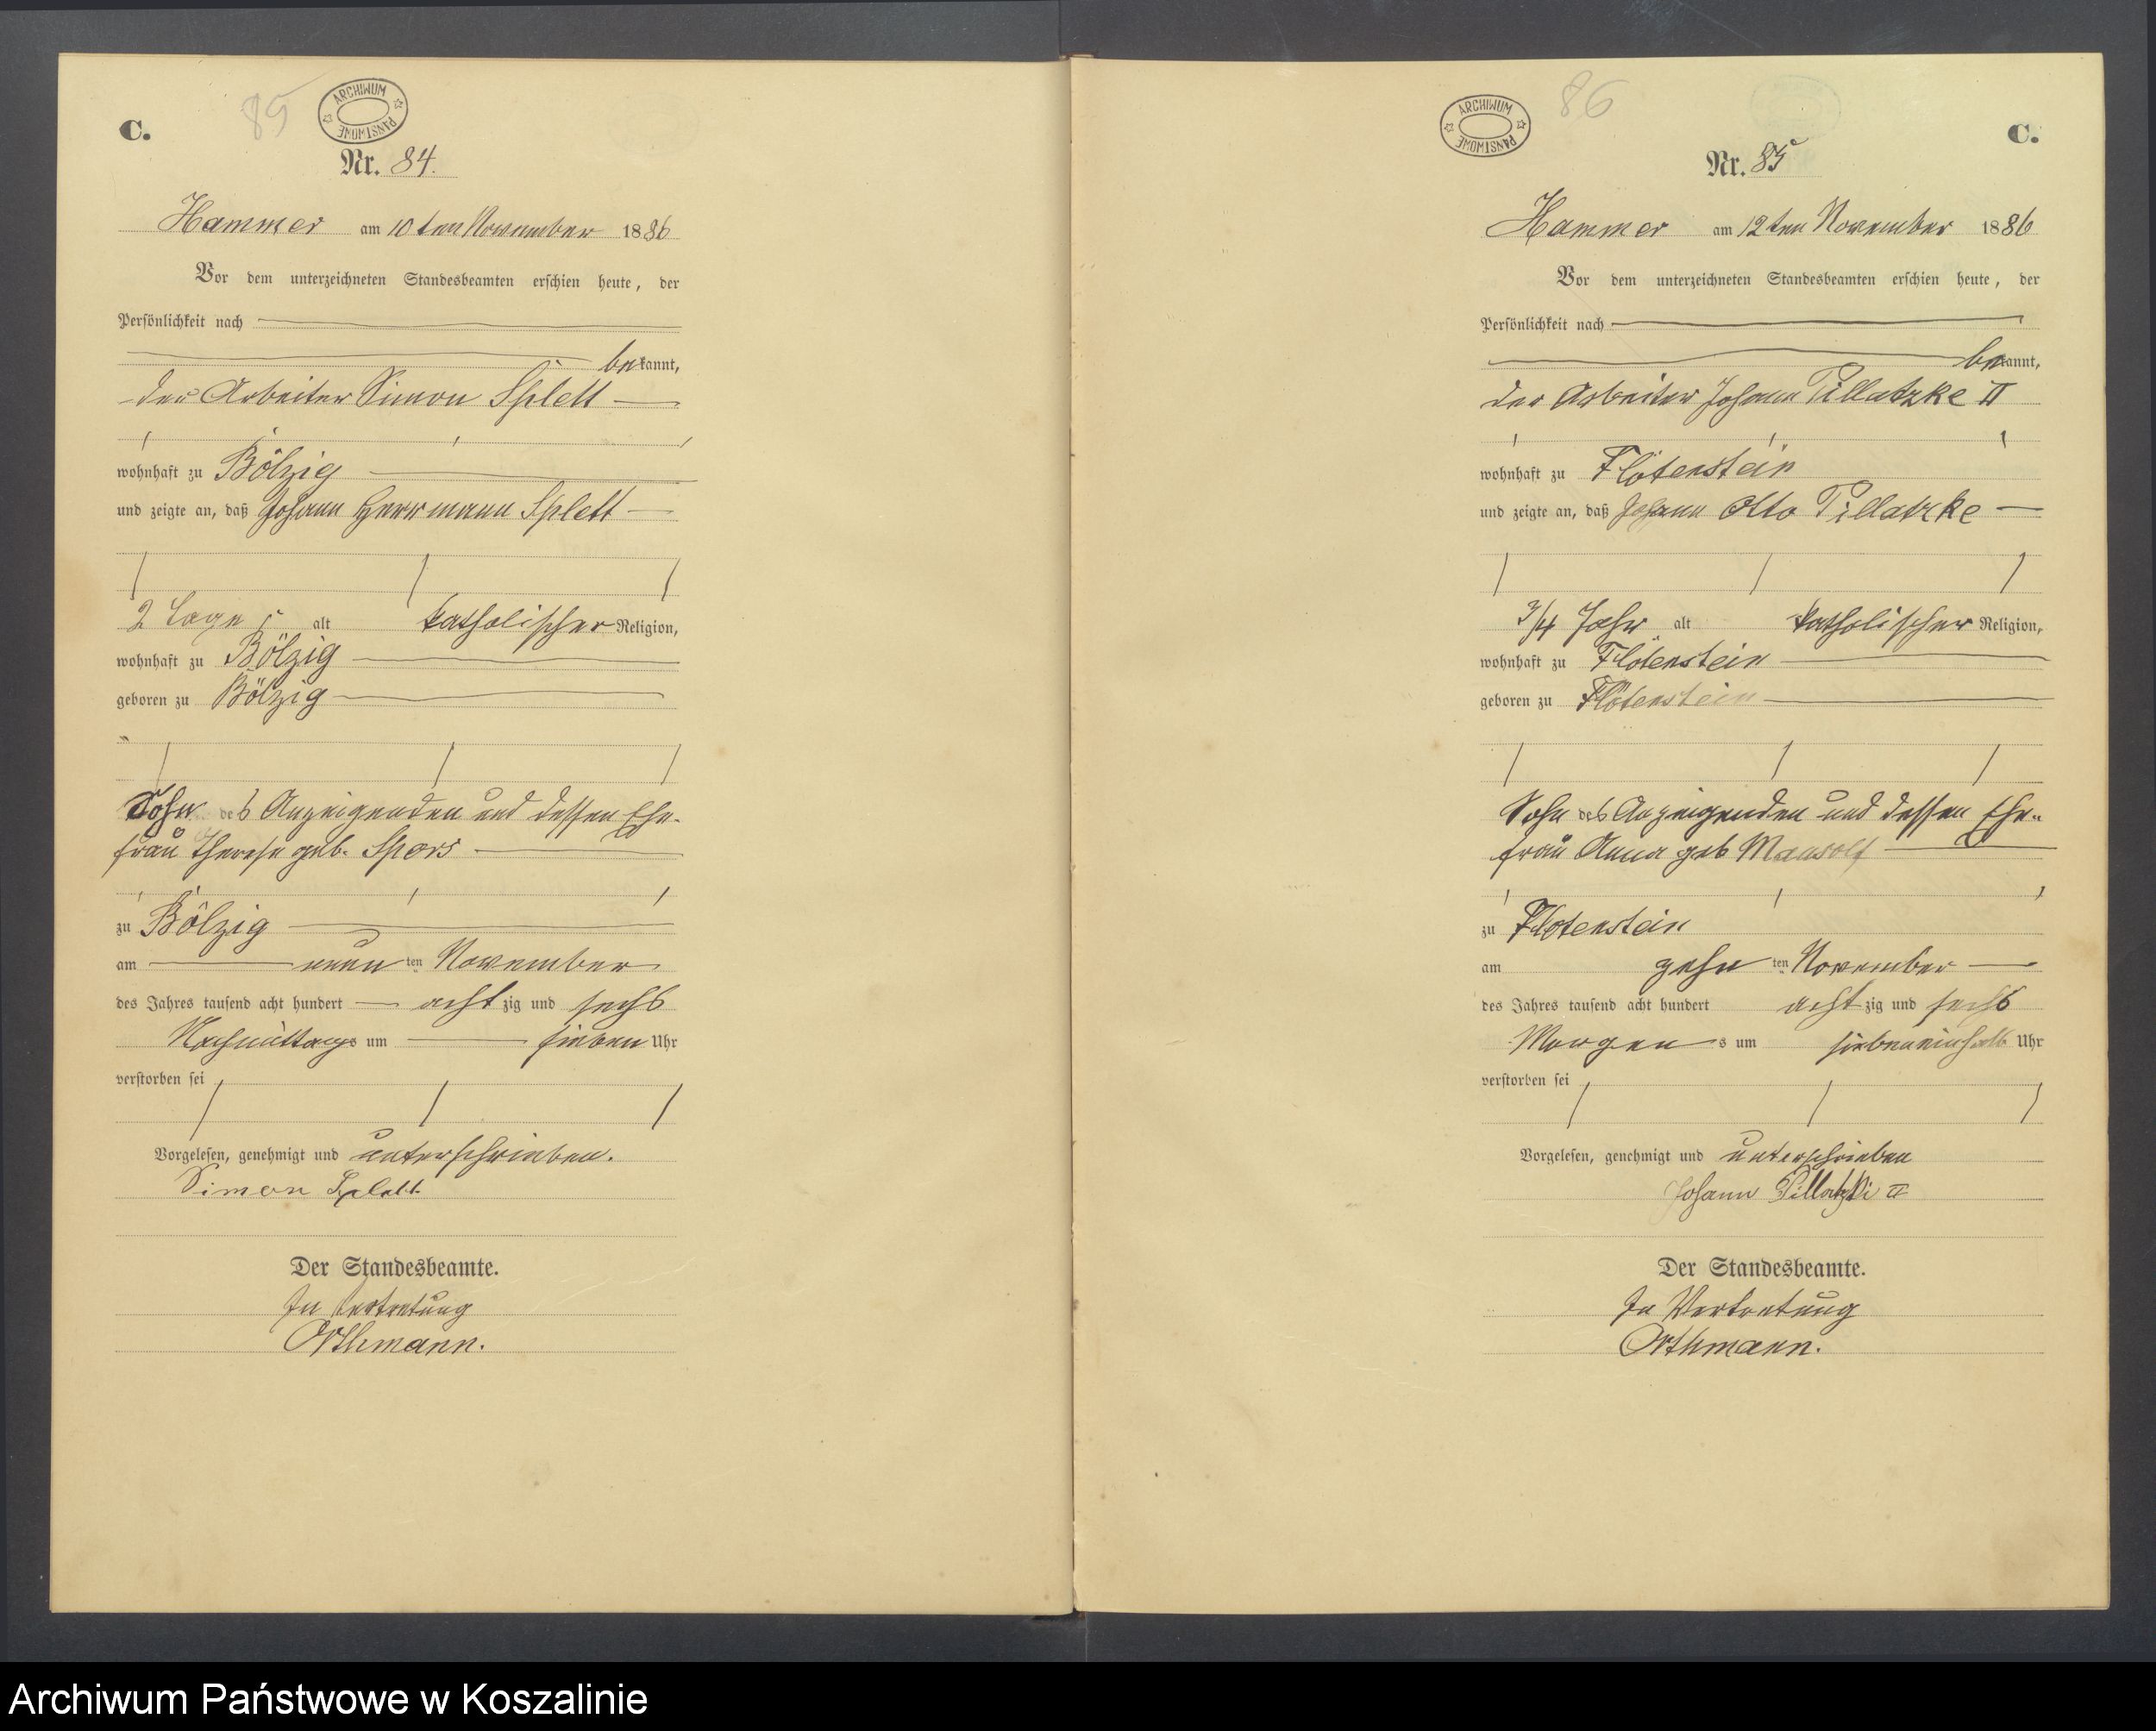 C.
85
ARCHIWUM PAŃSTWOWE
Nr. 84.
Hammer am 10ten November 1886
Vor dem unterzeichneten Standesbeamten erschien heute, der
Persönlichkeit nach
bekannt,
der Arbeiter Simon Splett
wohnhaft zu Bölzig
und zeigte an, daß Johann Herrmann Splett
2 Tage alt katholischer Religion,
wohnhaft zu Bölzig
geboren zu Bölzig
Sohn des Anzeigenden und dessen Ehe-
frau Therese geb. Spors
zu Bölzig
am neun ten November
des Jahres tausend acht hundert acht zig und sechs
Nachmittags um sieben Uhr
verstorben sei
Vorgelesen, genehmigt und unterschrieben.
Simon Splett
Der Standesbeamte.
In Vertretung
Orthmann.
86
ARCHIWUM PAŃSTWOWE
C.
Nr. 85
Hammer am 12ten November 1886
Vor dem unterzeichneten Standesbeamten erschien heute, der
Persönlichkeit nach
bekannt,
der Arbeiter Johann Pillatzke II
wohnhaft zu Flötenstein
und zeigte an, daß Johann Otto Pillatzke
3/4 Jahr alt katholischer Religion,
wohnhaft zu Flötenstein
geboren zu Flötenstein
Sohn des Anzeigenden und dessen Ehe-
frau Anna geb Mansolf
zu Flötenstein
am zehn ten November
des Jahres tausend acht hundert acht zig und sechs
Morgens um siebeneinhalb Uhr
verstorben sei
Vorgelesen, genehmigt und unterschrieben
Johann Pillatzki II
Der Standesbeamte.
In Vertretung
Orthmann.
Archiwum Państwowe w Koszalinie